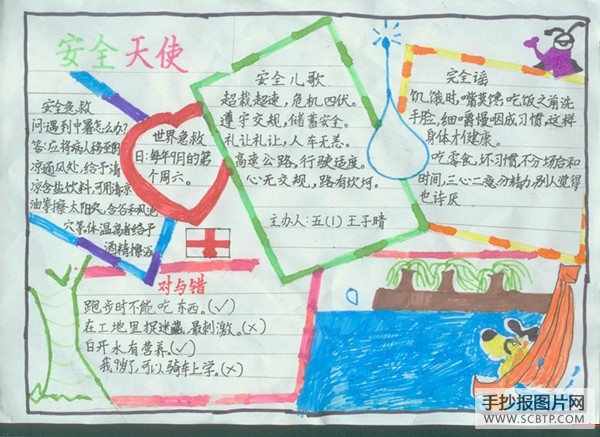 安全天使
安全急救
问:遇到中暑怎么办?
答:应将病人移至阴
凉通风处,给予清
凉含盐饮料,可用清凉
油等擦太阳穴,合谷和风池
穴等,体温高者给予
酒精擦浴
世界急救
日:每年9月的第
个周六。
安全儿歌
超载超速,危机四伏。
遵守交规,储蓄安全。
礼让礼让,人车无恙。
高速公路,行驶适度。
心无交规,路有坎坷。
主办人:五(1)王子晴
完全谣
饥饿时,嘴莫馋,吃饭之前洗
手脸,细嚼慢咽成习惯,这样
身体才健康。
吃零食,坏习惯,不分场合和
时间,三心二意分精力,别人觉得
也许厌
对与错
跑步时不能吃东西。(√)
在工地里捉迷藏,最刺激。(×)
白开水有营养。(√)
我9岁了,可以骑车上学。(×)
手抄报图片网
WWW.SCBTP.COM